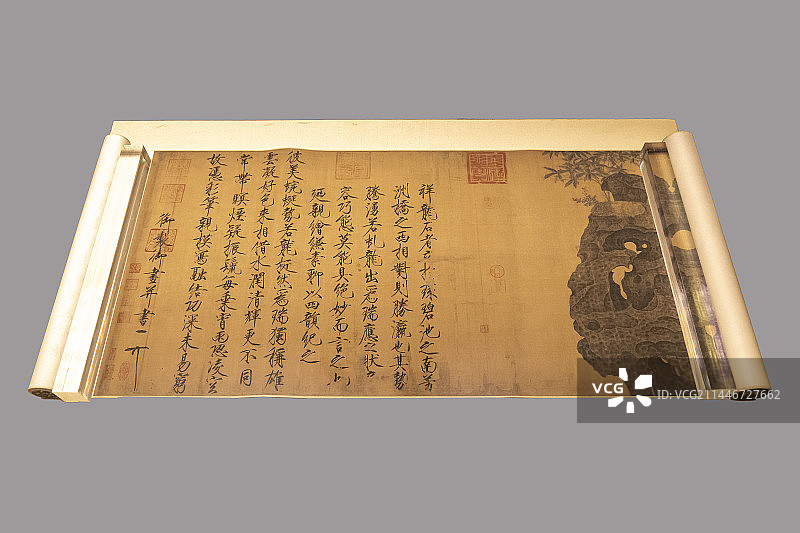 祥龍石者立於環碧池之南芳
洲橋之西相對則勝瀛也其勢
騰湧若虬龍出為瑞應之狀奇
容巧態莫能具絕妙而言之也
廼親繪縑素聊以四韻紀之
彼美蜿蜒勢若龍挺然為瑞獨稱雄
雲凝好色來相借水潤清輝更不同
常帶暝煙疑振鬣每乘宵雨恐凌空
故憑彩筆親模寫融結功深未易窮
御製御畫并書
VCG
VCG.COM
ID: VCG211446727662